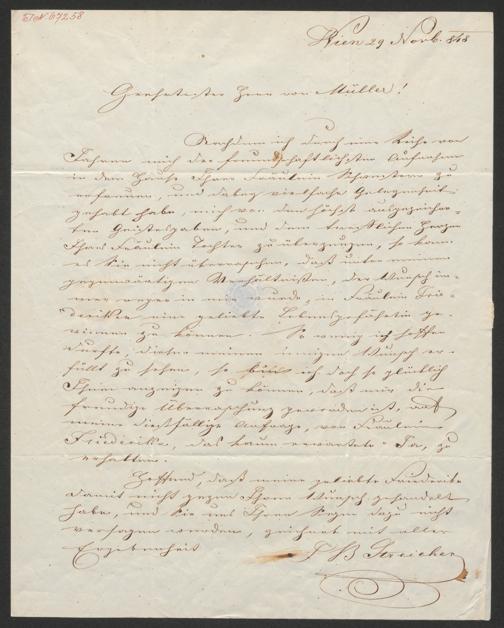 Wien 29 Novb. 848
Geehrtester Herr von Müller!
Nachdem ich durch eine Reihe von
Jahren mich der freundschaftlichsten Aufnahme
in dem Hause Ihrer Fräulein Schwestern zu
erfreuen, und dabey vielfache Gelegenheit
gehabt habe, mich von den höchst ausgezeichne-
ten Geistesgaben, und dem trefflichen Herzen
Ihres Fräulein Tochter zu überzeugen, so kann
es Sie nicht überraschen, daß unter meinen
gegenwärtigen Verhältnißen, der Wunsch im-
mer reger in mir wurde, in Fräulein Frie-
dericke eine geliebte Lebensgefährtin ge-
winnen zu können. So wenig ich hoffen
durfte, diesen meinen innigen Wunsch er-
füllt zu sehen, so bin ich doch so glücklich
Ihnen anzeigen zu können, daß mir die
freudige Überraschung geworden ist, auf
meine dießfällige Anfrage, von Fräulein
Friedericke, das kaum erwartete Ja, zu
erhalten.
Hoffend, daß meine geliebte Friedericke
damit nicht gegen Ihren Wunsch gehandelt
habe, und Sie uns Ihren Segen dazu nicht
versagen werden, zeichnet mit aller
Ergebenheit
J B Streicher